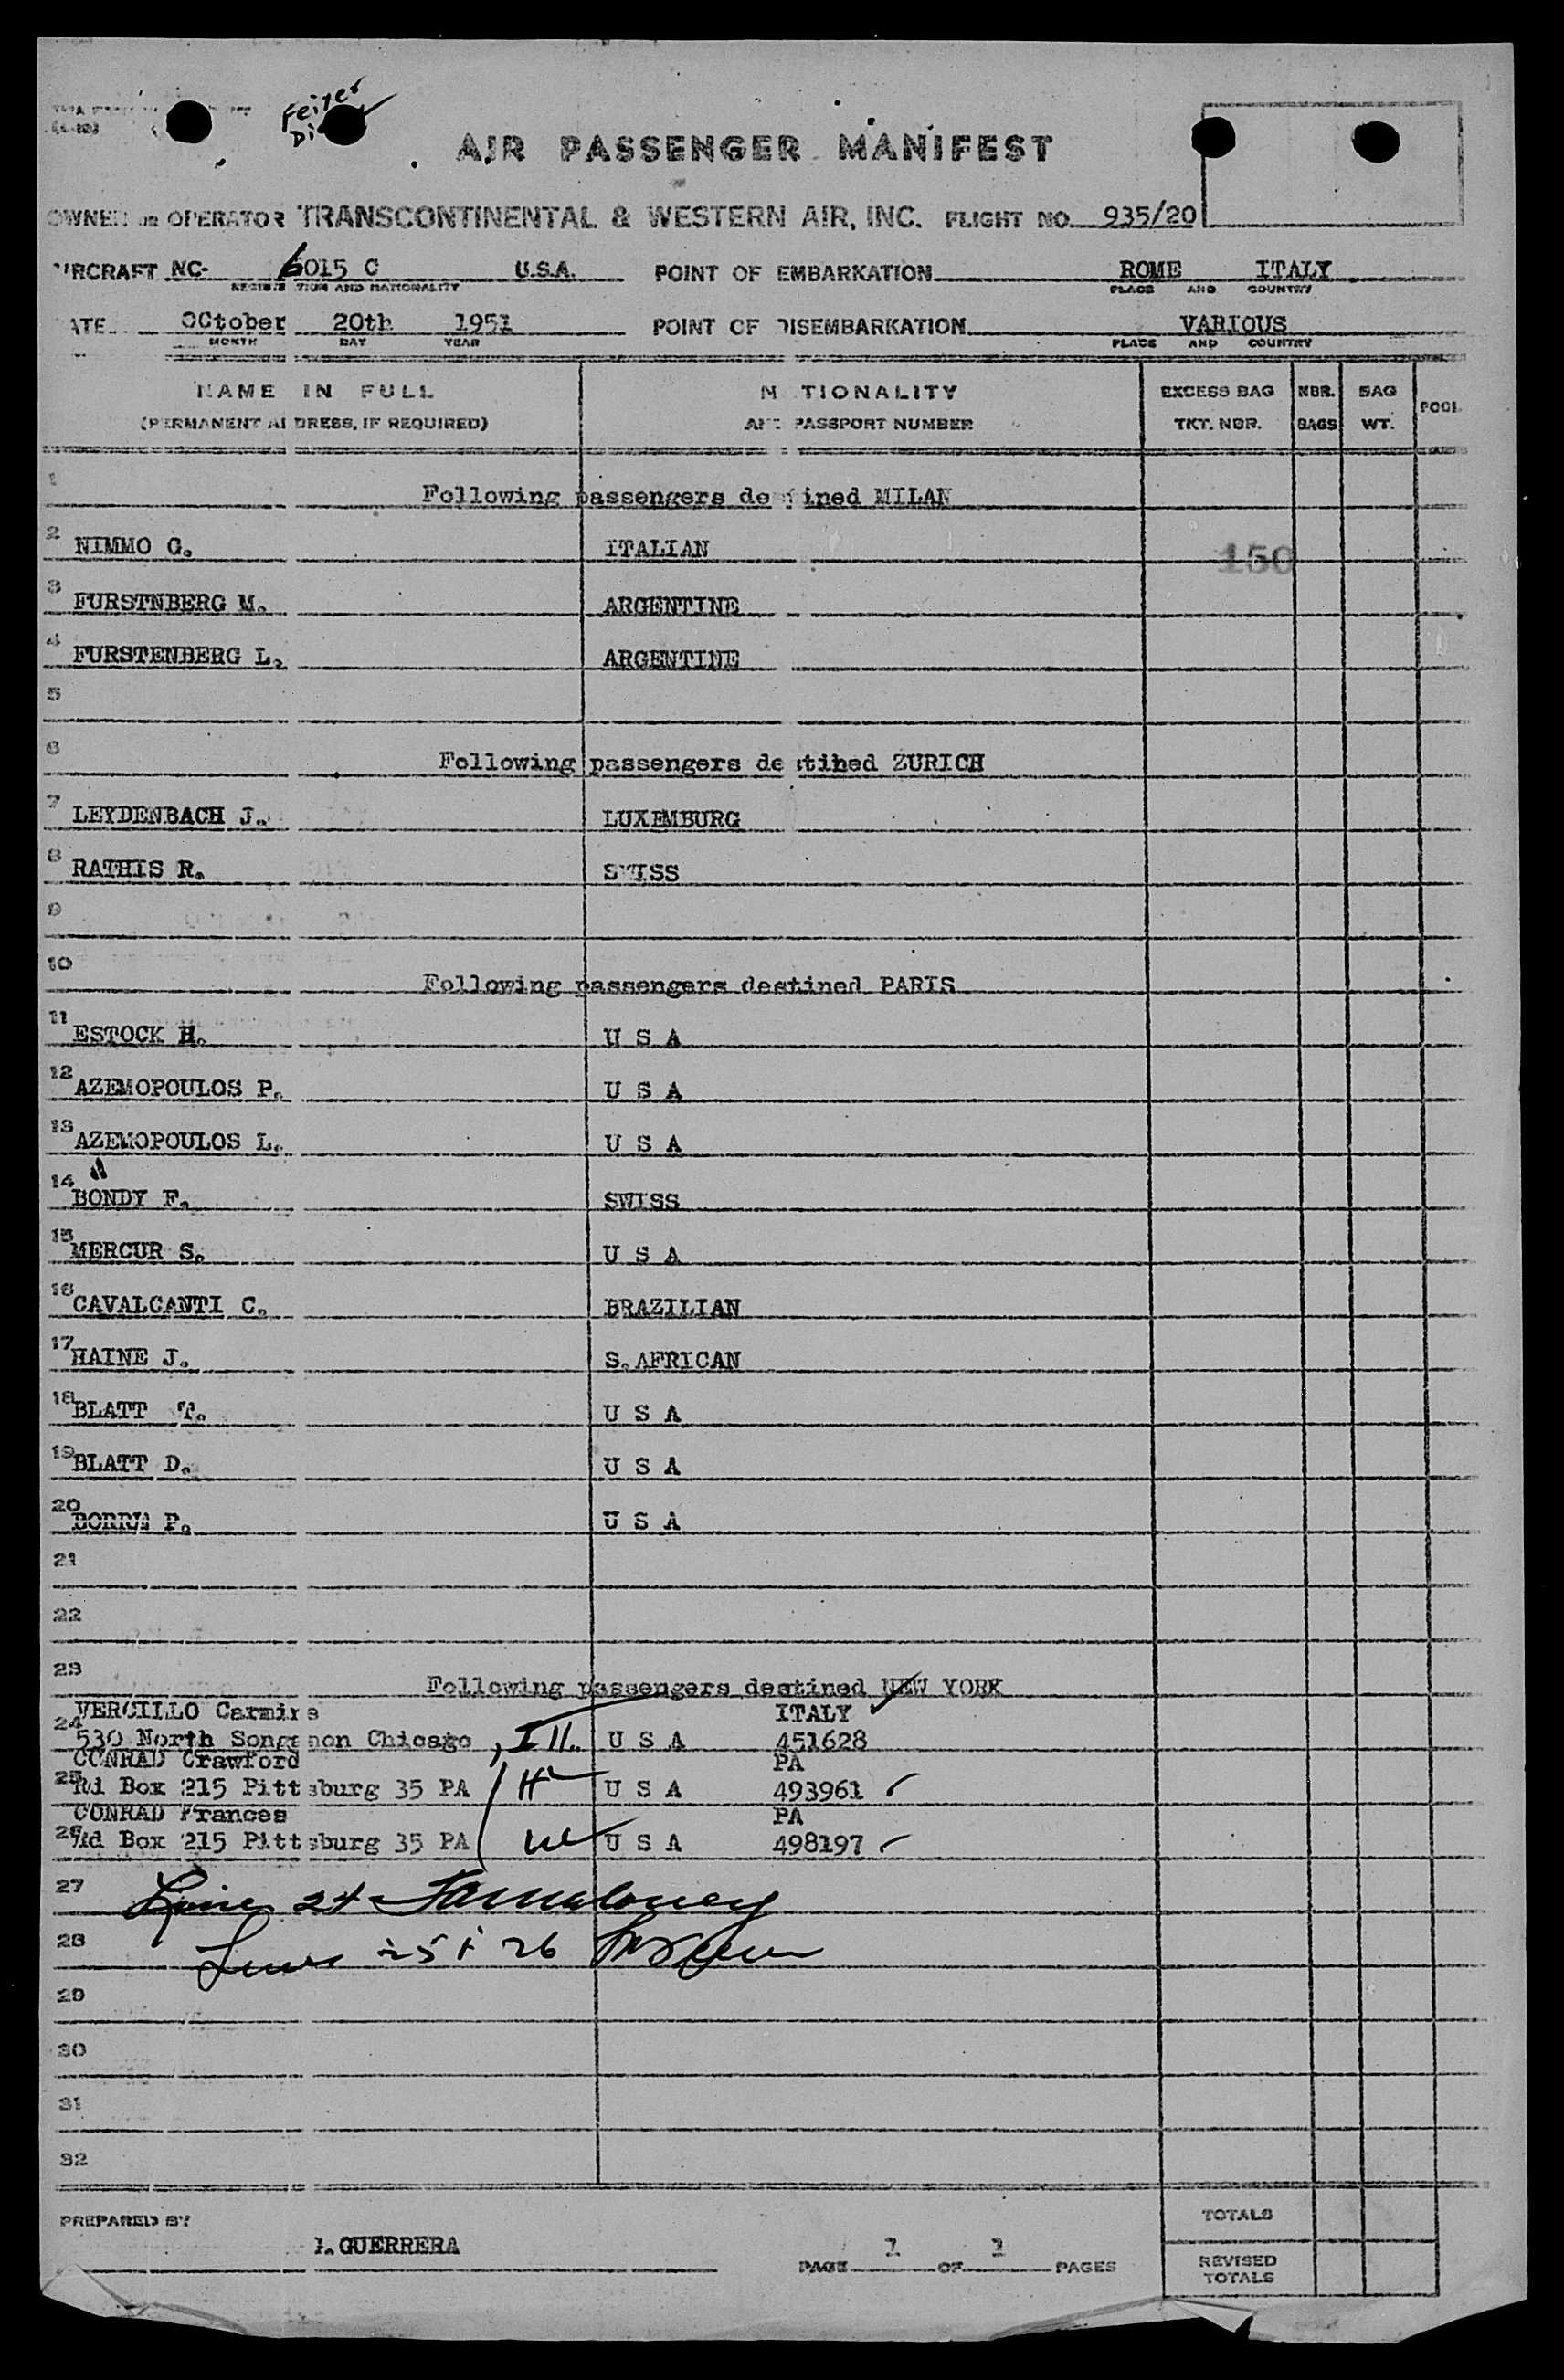 Feiter
AIR PASSENGER MANIFEST
OWNER OR OPERATOR TRANSCONTINENTAL & WESTERN AIR, INC. FLIGHT NO. 935/20
AIRCRAFT NC- 6015 C U.S.A. POINT OF EMBARKATION ROME ITALY
REGISTRATION AND NATIONALITY PLACE AND COUNTRY
DATE OCtober 20th 1951 POINT OF DISEMBARKATION VARIOUS
MONTH DAY YEAR PLACE AND COUNTRY
NAME IN FULL NATIONALITY EXCESS BAG NBR. BAG POOL
(PERMANENT ADDRESS, IF REQUIRED) AND PASSPORT NUMBER TKT. NBR. BAGS WT.
1 Following passengers destined MILAN
2 NIMMO G. ITALIAN 150
3 FURSTNBERG M. ARGENTINE
4 FURSTENBERG L. ARGENTINE
5
6 Following passengers destined ZURICH
7 LEYDENBACH J. LUXEMBURG
8 RATHIS R. SWISS
9
10 Following passengers destined PARIS
11 ESTOCK H. U S A
12 AZEMOPOULOS P. U S A
13 AZEMOPOULOS L. U S A
14 BONDY F. SWISS
15 MERCUR S. U S A
16 CAVALCANTI C. BRAZILIAN
17 HAINE J. S.AFRICAN
18 BLATT T. U S A
19 BLATT D. U S A
20 P. U S A
21
22
23 Following passengers destined NEW YORK
VERCILLO Carmira ITALY
24 530 North Songamon Chicago , Ill. U S A 451628
CONRAD Crawford PA
25 Rd Box 215 Pittsburg 35 PA U S A 493961
CONRAD Frances PA
26 Rd Box 215 Pittsburg 35 PA U S A 498197
27 Line 24
28 Lines 25 & 26
29
30
31
32
PREPARED BY TOTALS
I. GUERRERA
PAGE 1 OF 1 PAGES REVISED
TOTALS